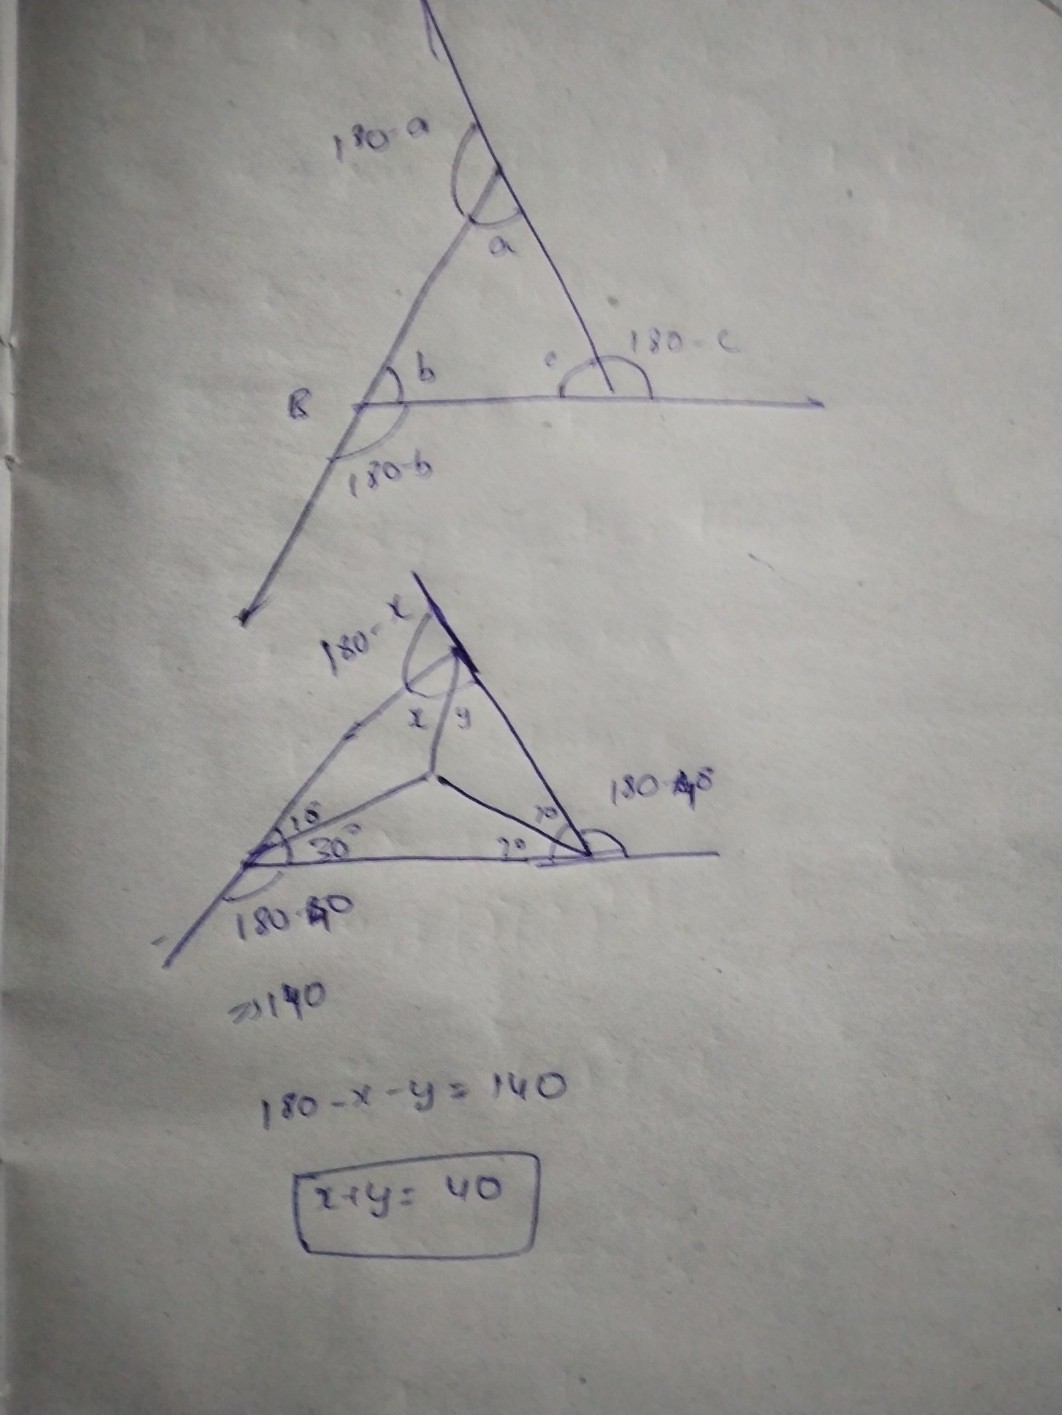 180-a
a
b
c
180-c
B
180-b
180-x
x
y
10
30°
20
180-
180-
=>140
180-x-y=140
x+y= 40